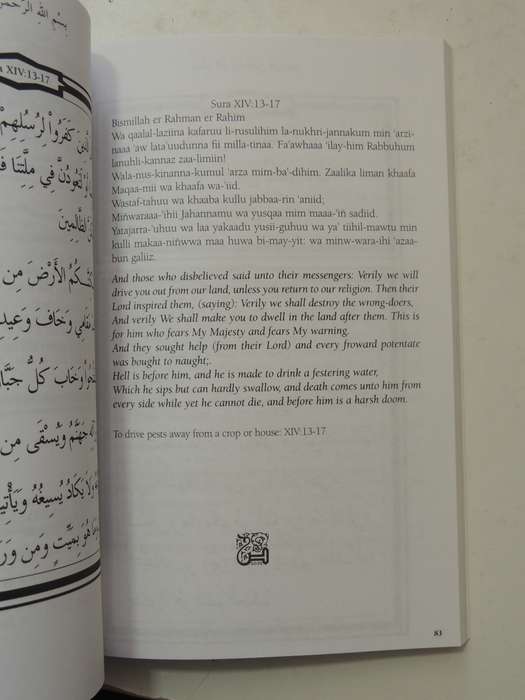 بِسْمِ اللهِ الرَّحْمَنِ
XIV:13-17
كَفَرُواْ لِرُسُلِهِمْ
فِي مِلَّتِنَا
الظَّالِمِينَ
الأَرْضَ مِن
وَخَافَ وَعِيدِ
وَخَابَ كُلُّ
جَهَنَّمُ وَيُسْقَى مِن
وَلاَ يَكَادُ يُسِيغُهُ
هُوَ بِمَيِّتٍ وَمِن
Sura XIV:13-17
Bismillah er Rahman er Rahim
Wa qaalal-laziina kafaruu li-rusulihim la-nukhri-jannakum min 'arzi-
naaa 'aw lata'uudunna fii milla-tinaa. Fa'awhaaa 'ilay-him Rabbuhum
lanuhli-kannaz zaa-limiin!
Wala-nus-kinanna-kumul 'arza mim-ba'-dihim. Zaalika liman khaafa
Maqaa-mii wa khaafa wa-'iid.
Wastaf-tahuu wa khaaba kullu jabbaa-rin 'aniid;
Miñwaraaa-'ihii Jahannamu wa yusqaa mim maaa-'iñ sadiid.
Yatajarra-'uhuu wa laa yakaadu yusii-guhuu wa ya' tiihil-mawtu min
kulli makaa-niñwwa maa huwa bi-may-yit: wa minw-wara-ihi 'azaa-
bun galiiz.
And those who disbelieved said unto their messengers: Verily we will
drive you out from our land, unless you return to our religion. Then their
Lord inspired them, (saying): Verily we shall destroy the wrong-doers,
And verily We shall make you to dwell in the land after them. This is
for him who fears My Majesty and fears My warning.
And they sought help (from their Lord) and every froward potentate
was bought to naught;.
Hell is before him, and he is made to drink a festering water,
Which he sips but can hardly swallow, and death comes unto him from
every side while yet he cannot die, and before him is a harsh doom.
To drive pests away from a crop or house: XIV:13-17
83